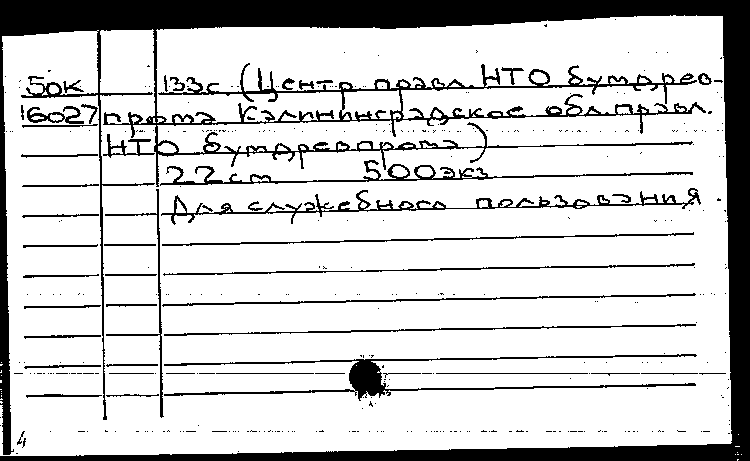 50к 133с (Центр правл. НТО бумдрев-
16027 прома Калининградское обл. правл.
НТО бумдревпрома)
22 см 500 экз
Для служебного пользования.
4